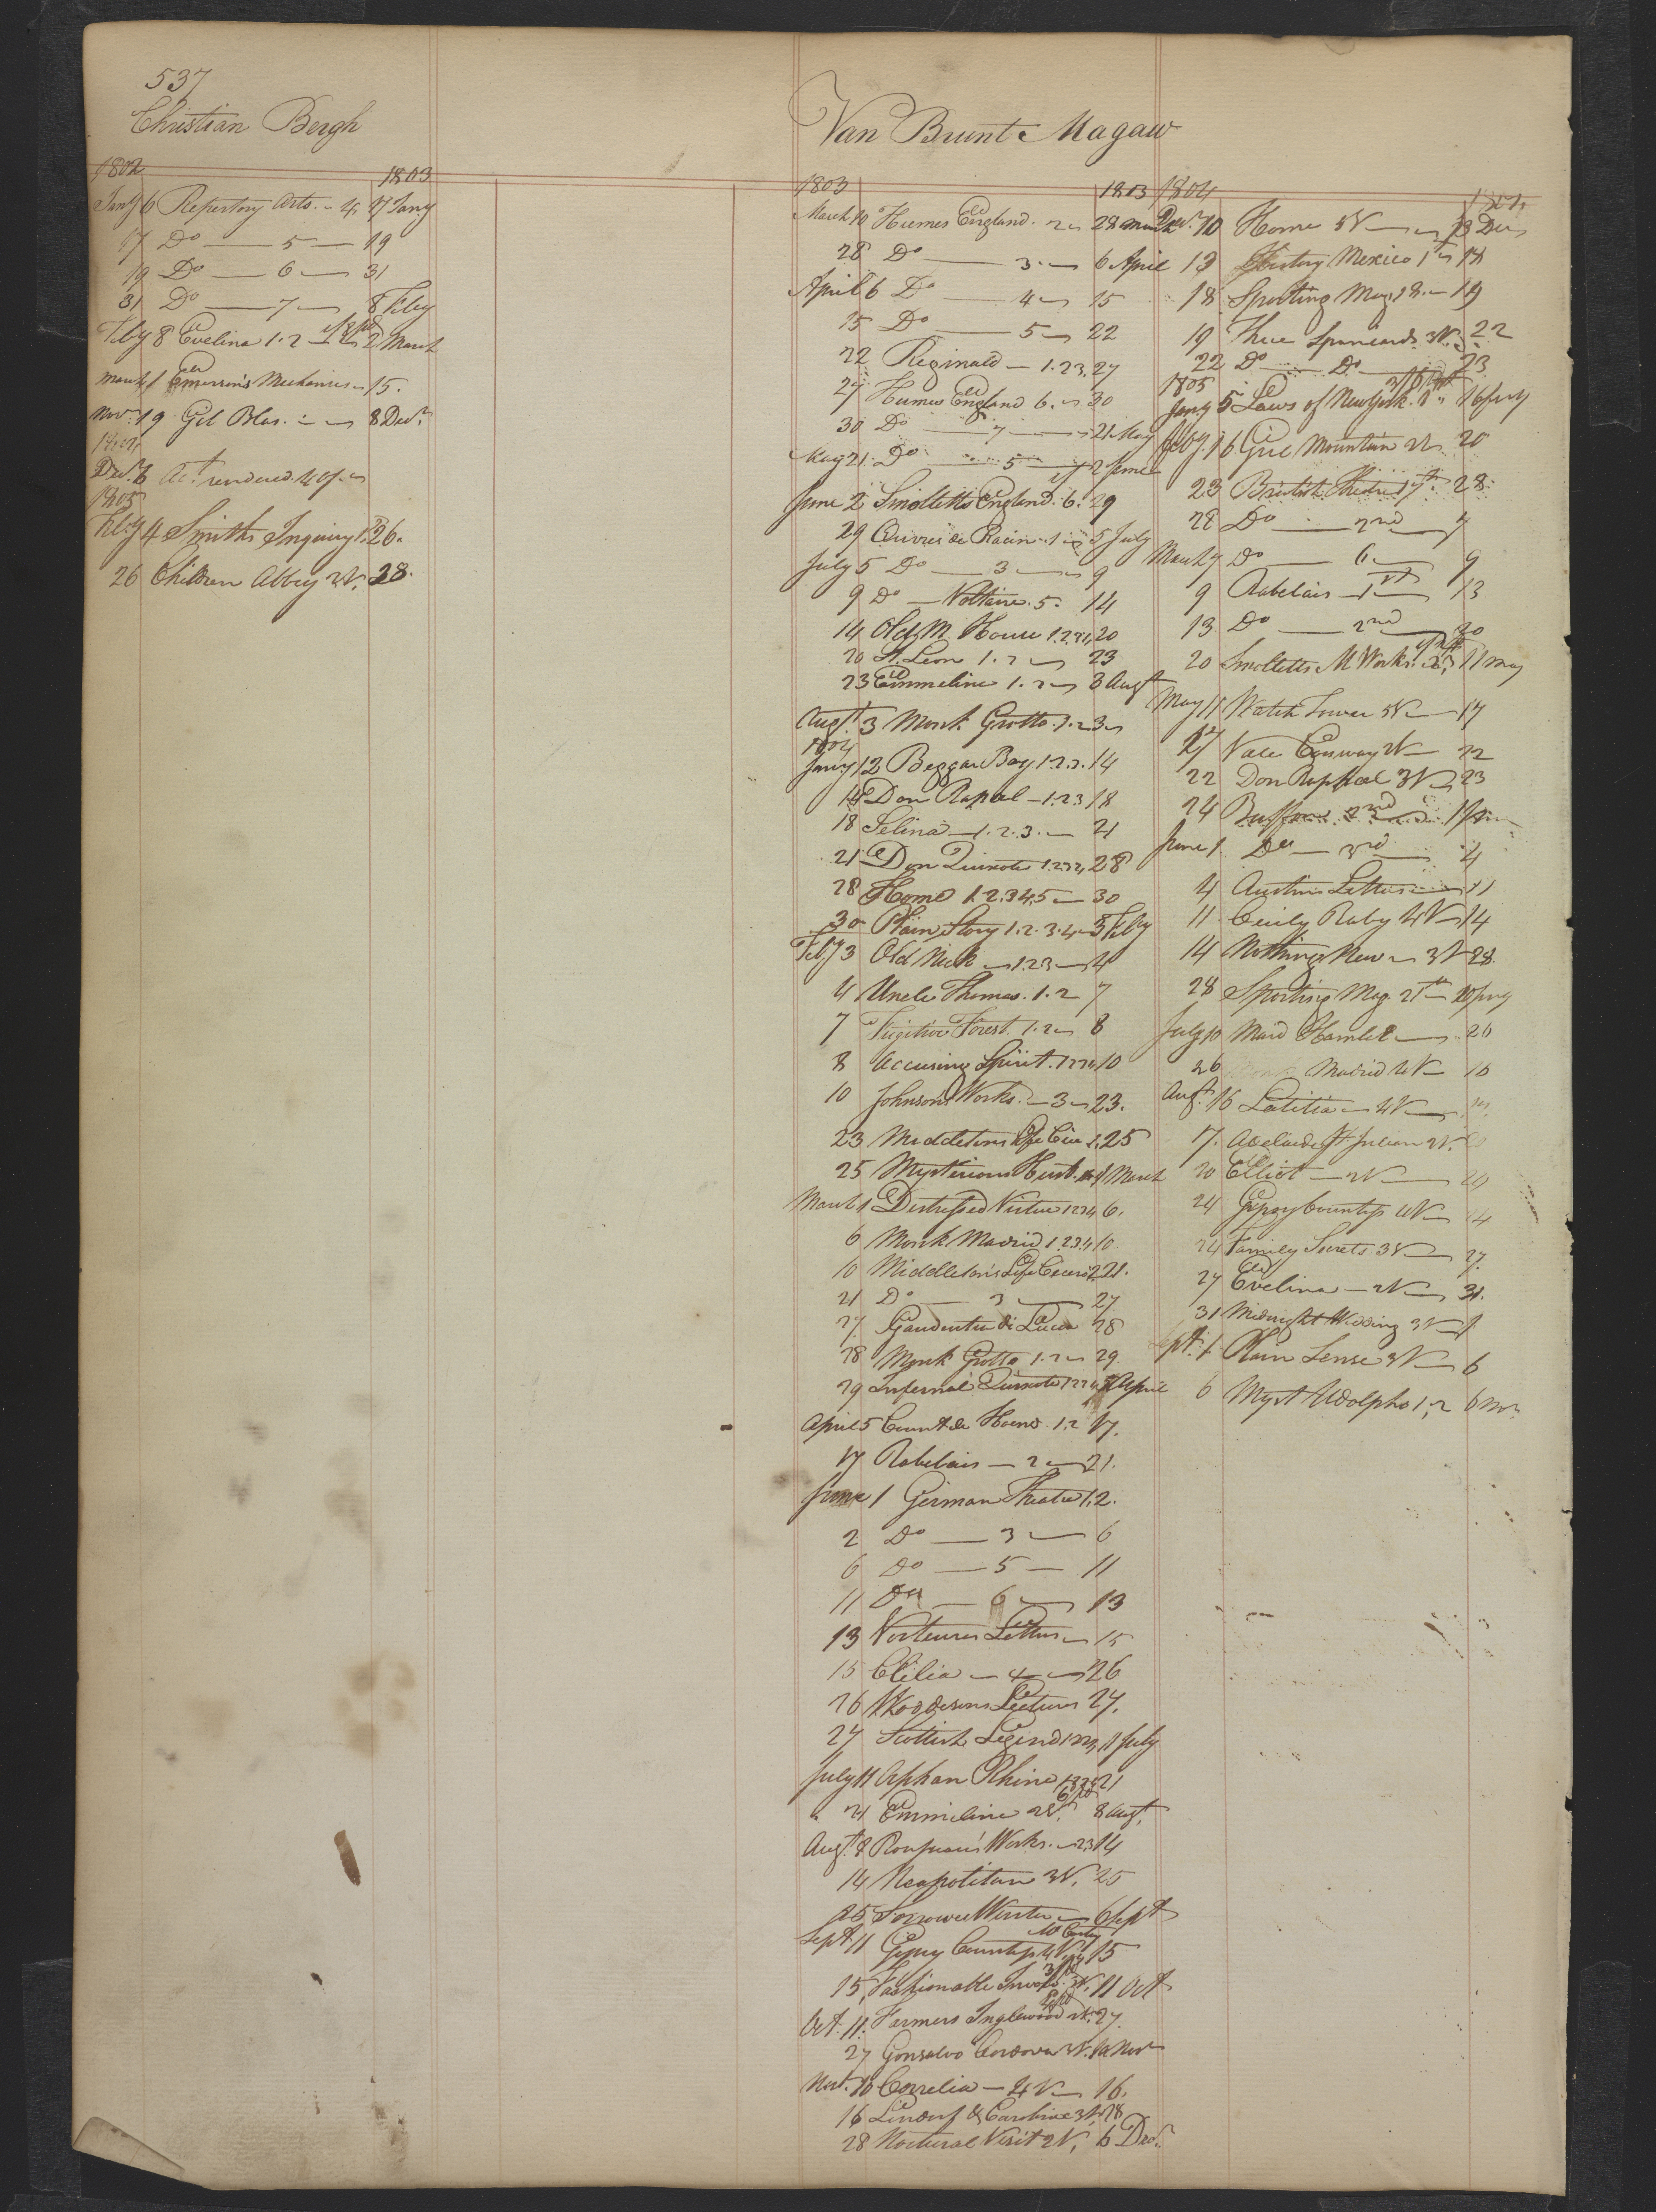 537
Christian Bergh
1802 1803
Jany 6 Repertory Arts. - 4 17 Jany
17 Do — 5 — 19
19 Do — 6 — 31
31 Do — 7 — 8 Feby
Feby 8 Evelina 1.2 — 2 March
March 1 Emerson's Mechanics — 15.
Nov. 19 Gil Blas. — 8 Decr.
1804
Decr. 6 Act rendered
1805
Feby 4 Smiths Inquiry 1. 26.
26 Children Abbey 2V. 28.
Van Brunt Magaw
1803 1803
March 10 Humes England. 2 28 March
28 Do — 3 — 6 April
April 6 Do — 4 — 15
15 Do — 5 — 22
22 Reginald — 1.2.3. 27
27 Humes England 6. — 30
30 Do — 7 — 21 May
May 21 Do — 5 — 2 June
June 2 Smolletts England. 6. 29
29 Œuvres de Racine. 1 — 5 July
July 5 Do — 3 — 9
9 Do — Voltaire. 5. 14
14 Old M House 1.2.3.4. 20
20 St. Leon 1.2 — 23
23 Emmeline 1.2 — 3 Augt
Augt. 3 Monk Grotto. 1.2
1804
Jany 12 Beggar Boy 1.2.3. 14
14 Don Rapael — 1.2.3 18
18 Selina — 1.2.3. — 21
21 Don Quixote 1.2.3.4. 28
28 Home 1.2.3.4.5 — 30
30 Plain Story 1.2.3.4 — 3 Feby
Feby 3 Old Nick — 1.2.3 — 4
4 Uncle Thomas. 1.2 7
7 Fugitive Forest. 1.2 — 8
8 Accusing Spirit. 1.2.3.4 10
10 Johnsons Works. — 3 — 23.
23 Middletons Life Cice 1. 25
25 Mysterious Husb. 1 March
March 1 Distressed Virtue 1.2.3.4 6.
6 Monk Madrid 1.2.3.4 10
10 Middleton's Life Cicero 2. 21.
21 Do — 3 — 27
27 Gaudentio di Lucca 28
28 Monk Grotto 1.2 — 29.
29 Infernal Quixote 1.2.3.4. 5 April
April 5 Count de Hoend. 1.2 17.
17 Rabelais — 2 — 21.
June 1 German Theatre 1. 2.
2 Do — 3 — 6
6 Do — 5 — 11
11 Do — 6 — 13
13 Letters — 15
15 Clelia — 4 — 26
26 Wooddesons Lectures 27.
27 Scottish Legend 1.2.3.4 11 July
July 11 Orphan Rhine 1.2.3.4 21
21 Emmeline 2V. 8 Augt.
Augt. 8 Rousseau's Works. — 2.3 14
14 Neapolitan 3V. 25
25 Sorrows Werter — 6 Sept
Sept 11 Gipsy Countess 4V. 15
15 Fashionable Invols. 3V. 11 Oct
Oct. 11. Farmers Inglewood 4V. 27.
27 Gonsalvo Cordova 3V. 10 Nov
Nov. 10 Correlia — 4V — 16.
16 Lindorf & Caroline 3V. 28
28 Nocturnal Visit 2V. 6 Decr.
1804
Decr. 10 Home 5V — 13 Decr
13 History Mexico 1st 18
18 Sporting Mag. 18. — 19
19 Three Spaniards 3V. 22
22 Do — Do — 23
1805
Jany 5 Laws of New York. 1 16 Feby
Feby. 16 Girl Mountain 2V. 20
23 British Theatre 1st. 28.
28 Do — 2nd — 7
March 7 Do — 6 — 9
9 Rabelais — 1st — 13
13 Do — 2nd — 20
20 Smolletts M Works. 11 May
May 11 Watch Tower 5V — 17
17 Vale Conway 2V — 22
22 Don Raphael 3V — 23
24 Buffons 2nd 1 June
June 1 Do — 3rd — 4
4 Austins Letters — 11
11 Cecily Raby 4V — 14
14 Nothing New — 3V 28.
28 Sporting Mag. 21st 10 July
July 10 Maid Hamlet — 26
26 Madrid 4V — 16
Augt. 16 Latitia — 4V —
17. Adelaide St Julian 2V. 20
20 Elliot — 2V —
24 Gipsy Countess 4V — 24
24 Family Secrets 3V — 27.
27 Evelina — 2V — 31.
31 Midnight Wedding 3V — 1
Sept. 1 Plain Sense 3V — 6
6 Myst Udolpho 1, 2 6 Nov.